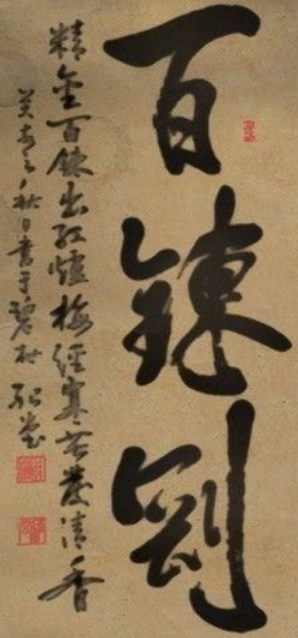 百鍊剛
精金百鍊出紅爐梅經寒苦發清香
癸之秋日書于碧